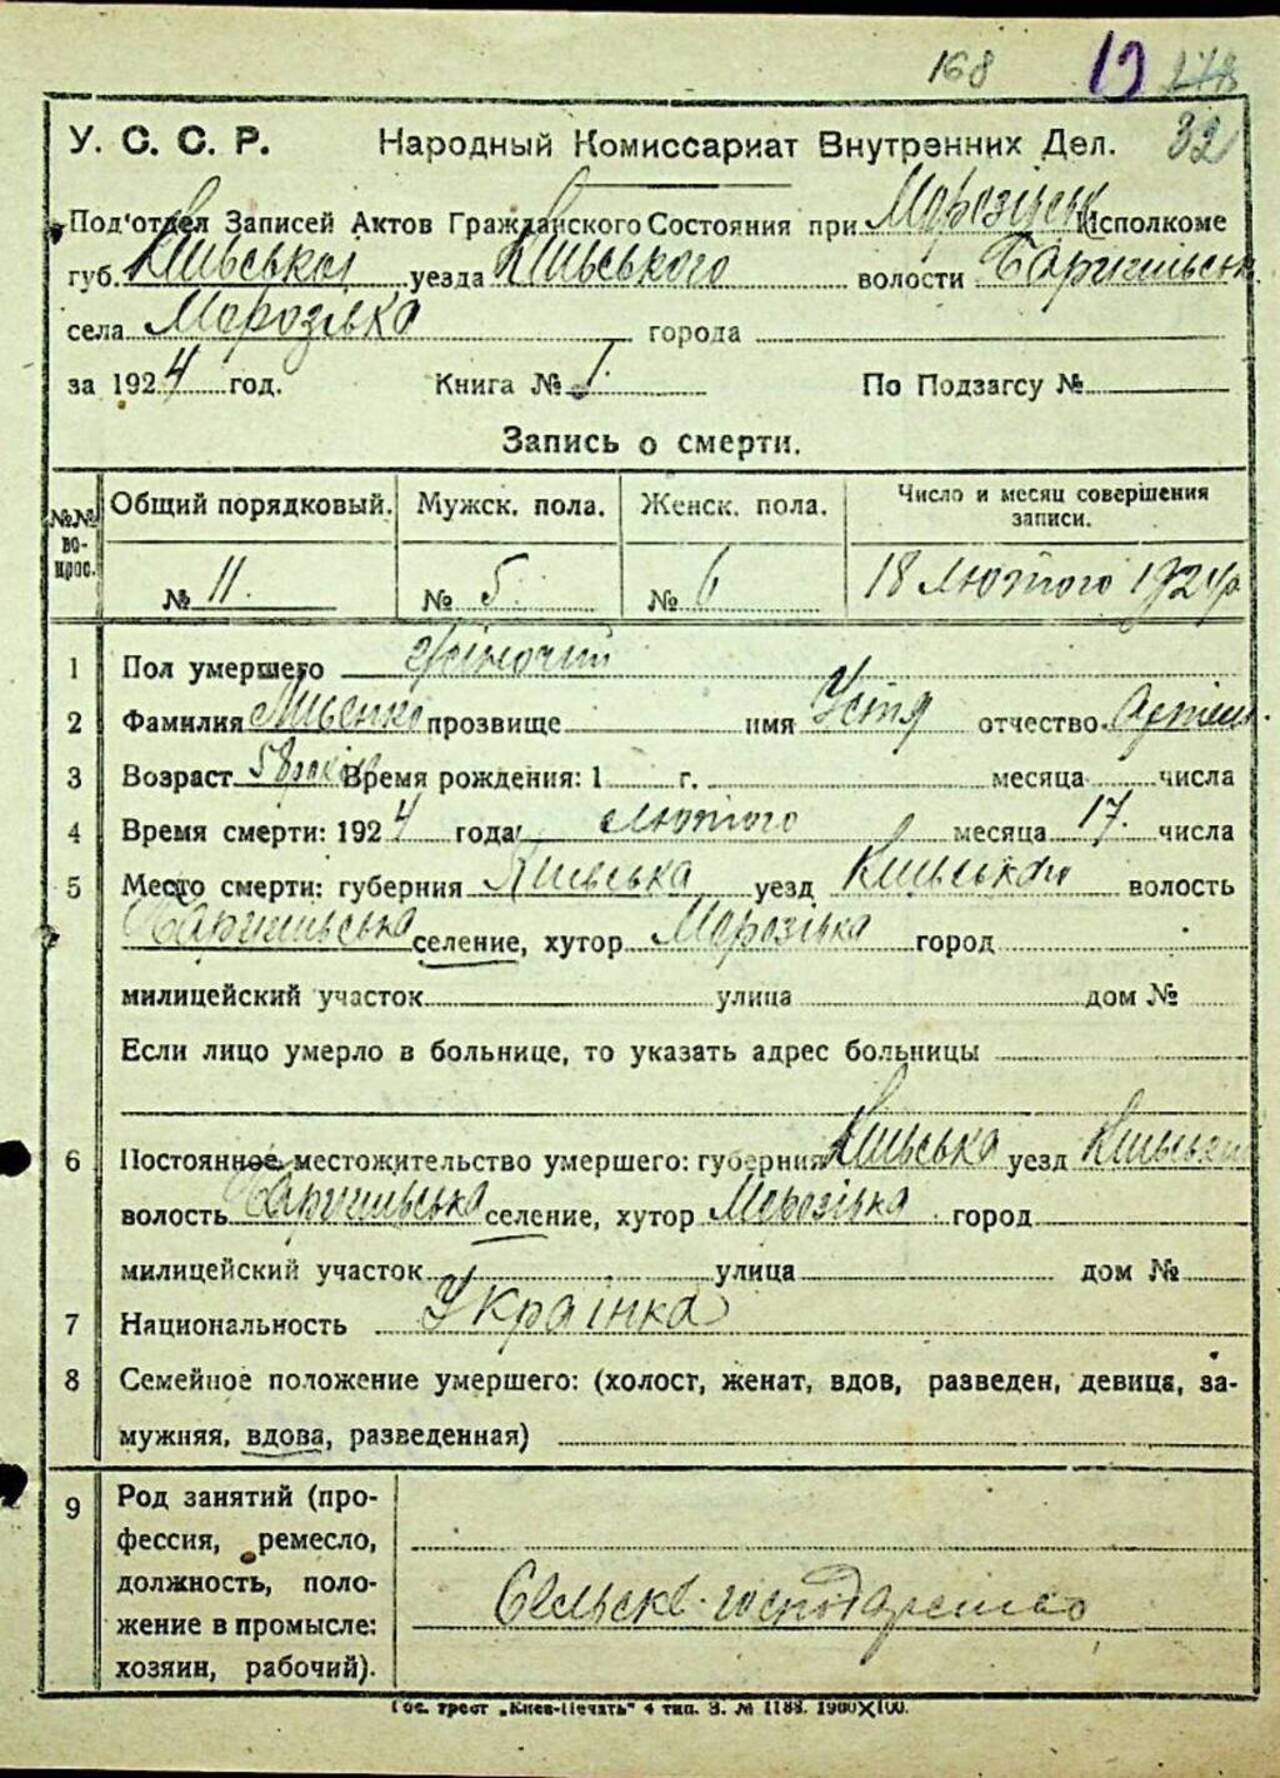 168 19 278
У. С. С. Р. Народный Комиссариат Внутренних Дел. 32
Под'отдел Записей Актов Гражданского Состояния при Морозівськ Исполкоме
губ. Київської уезда Київського волости Баришівськ
села Морозівка города
за 1924 год. Книга № 1. По Подзагсу №
Запись о смерти.
№№ во-прос. Общий порядковый. Мужск. пола. Женск. пола. Число и месяц совершения записи.
№ 11. № 5. № 6 18 лютого 1924р
1 Пол умершего жіночий
2 Фамилия прозвище имя Устя отчество
3 Возраст 58 років Время рождения: 1 г. месяца числа
4 Время смерти: 1924 года лютого месяца 17. числа
5 Место смерти: губерния Київська уезд Київський волость
Баришівська селение, хутор Морозівка город
милицейский участок улица дом №
Если лицо умерло в больнице, то указать адрес больницы
6 Постоянное местожительство умершего: губерния Київська уезд Київський
волость Баришівська селение, хутор Морозівка город
милицейский участок улица дом №
7 Национальность Українка
8 Семейное положение умершего: (холост, женат, вдов, разведен, девица, за-
мужняя, вдова, разведенная)
9 Род занятий (про-
фессия, ремесло,
должность, поло-
жение в промысле:
хозяин, рабочий).
Сельске-господарство
Гос. трест „Киев-Печать" 4 тип. З. № 1188. 1900X100.